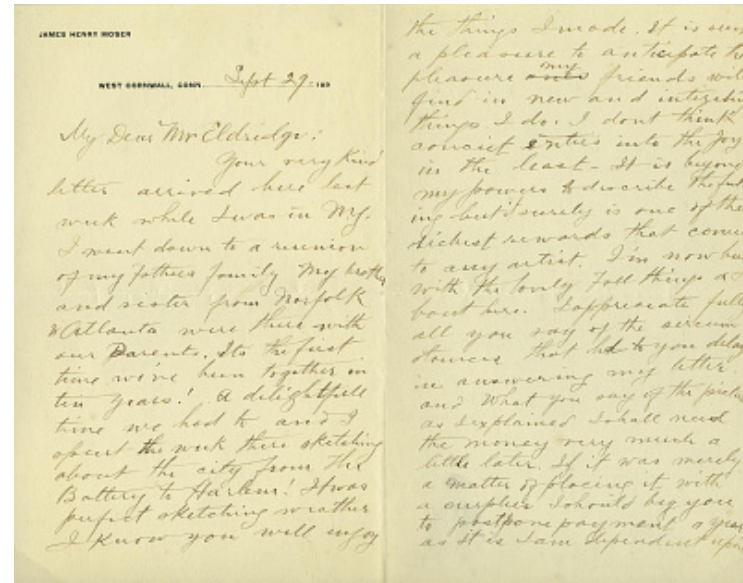 JAMES HENRY MOSER
WEST CORNWALL, CONN. Sept 29 189
My Dear Mr Eldridge:
Your very kind
letter arrived here last
week while I was in NY.
I went down to a reunion
of my fathers family My brother
and sister from Norfolk
& Atlanta were there with
our Parents. Its the first
time we've been together in
ten years! A delightful
time we had to and I
spent the week there sketching
about the city from the
Battery to Harlem! It was
perfect sketching weather
I know you will enjoy
the things I made. It is
a pleasure to anticipate the
pleasure my friends will
find in new and
things I do. I dont think
conciet enters into the Joy
in the least - It is beyond
my powers to describe the
ing but surely is one of the
richest rewards that
to any artist. I'm now
with the lovely Fall things a-
bout here. I appreciate
all you say of the
stances that led to you
in answering my letter
and what you say of the
as I explained I shall need
the money very much a
little later. If it was merely
a matter of placing it with
a surplus I should beg you
to postpone payment a year
as it is I am dependent upon